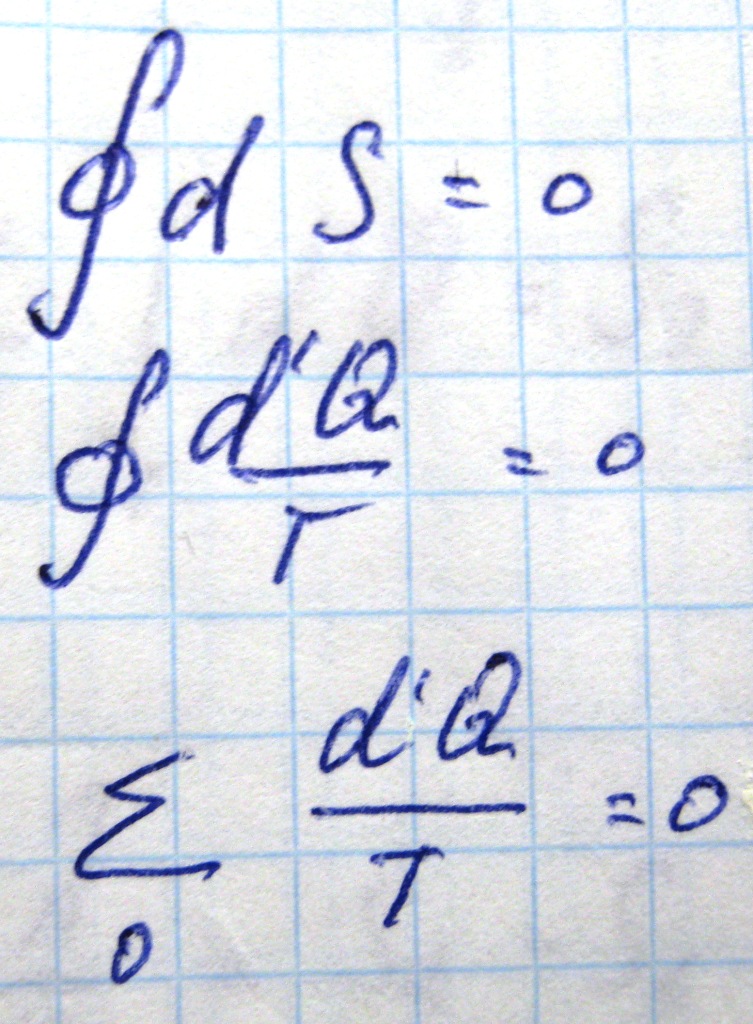 ∮ d S = 0
∮ d'Q / T = 0
∑₀ d'Q / T = 0